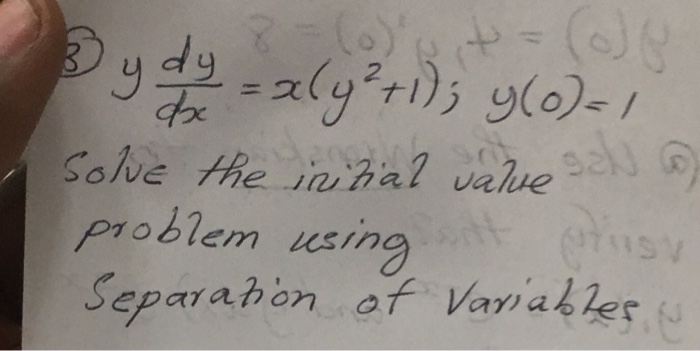 ③ y dy/dx = x(y²+1); y(0)=1
Solve the initial value
problem using
Separation of Variables.